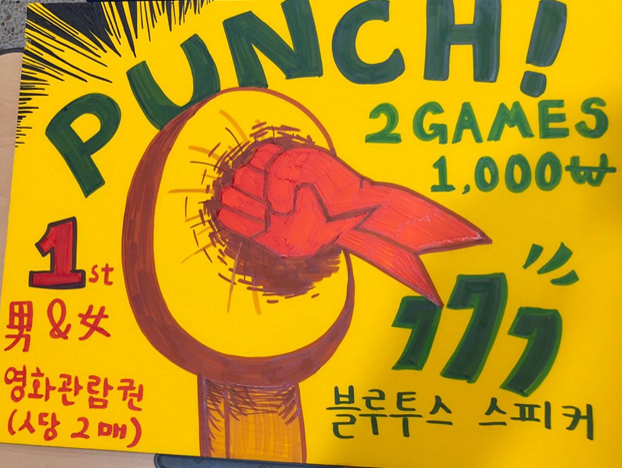 PUNCH!
2 GAMES
1,000₩
1st
男 & 女
영화관람권
(人당 2매)
777
블루투스 스피커